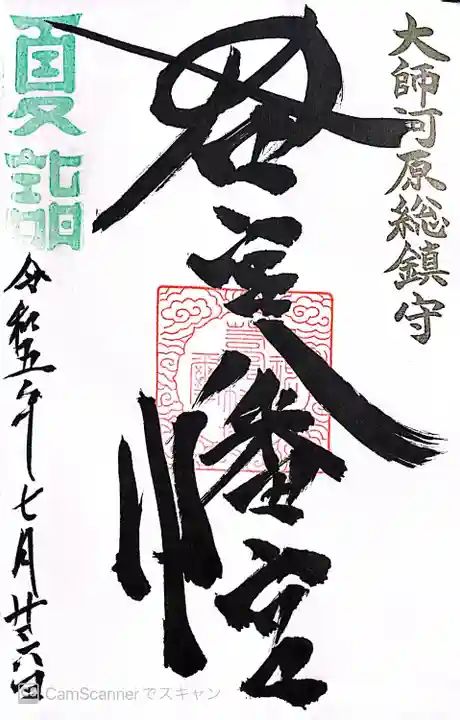 大師河原総鎮守
若宮八幡宮
夏詣
令和五年七月廿六日
CamScannerでスキャン